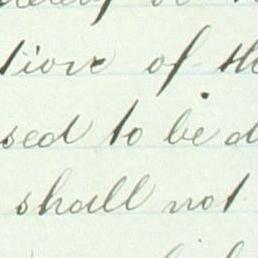 tion of th
sed to be d
shall not